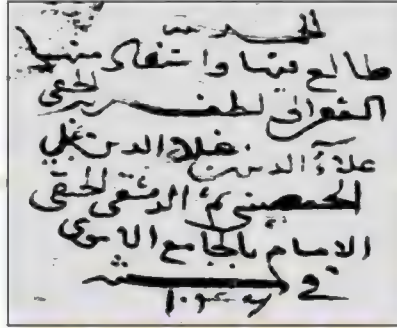 الحمد لله
طالع فيها واستفاد منها
الفقير الى لطف ربه الحفى
علاء الدين بن علاء الدين بن علي
الحصني ثم الدمشقي الحنفى
الامام بالجامع الاموى
في سنة